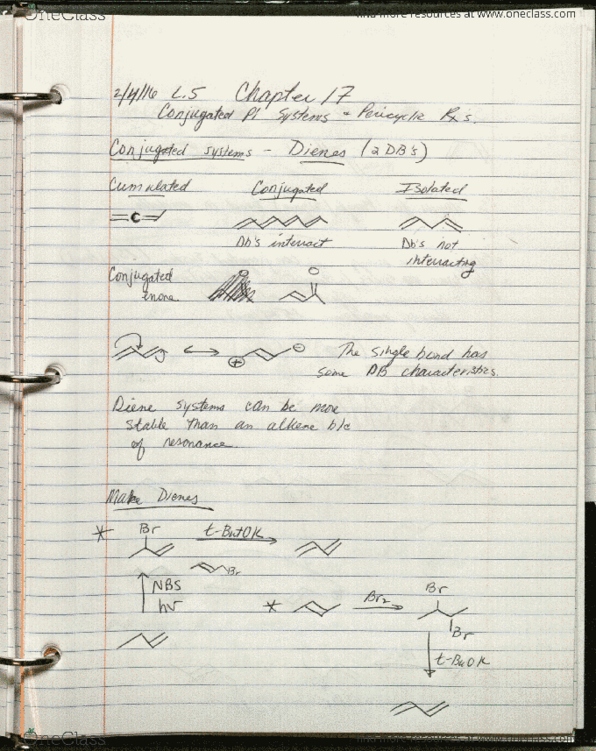 OneClass
find more resources at www.oneclass.com
2/4/16 L.5 Chapter 17
Conjugated Pi Systems + Pericyclic Rxs.
Conjugated systems - Dienes (2 DB's)
Cumulated Conjugated Isolated
C
Db's interact Db's not
interacting
Conjugated
enone
O
The single bond has
some DB characteristics.
Diene systems can be more
stable than an alkene b/c
of resonance
Make Dienes
* Br t-ButOK
Br
NBS
hv
* Br2 Br
Br
t-BuOK
OneClass
find more resources at www.oneclass.com